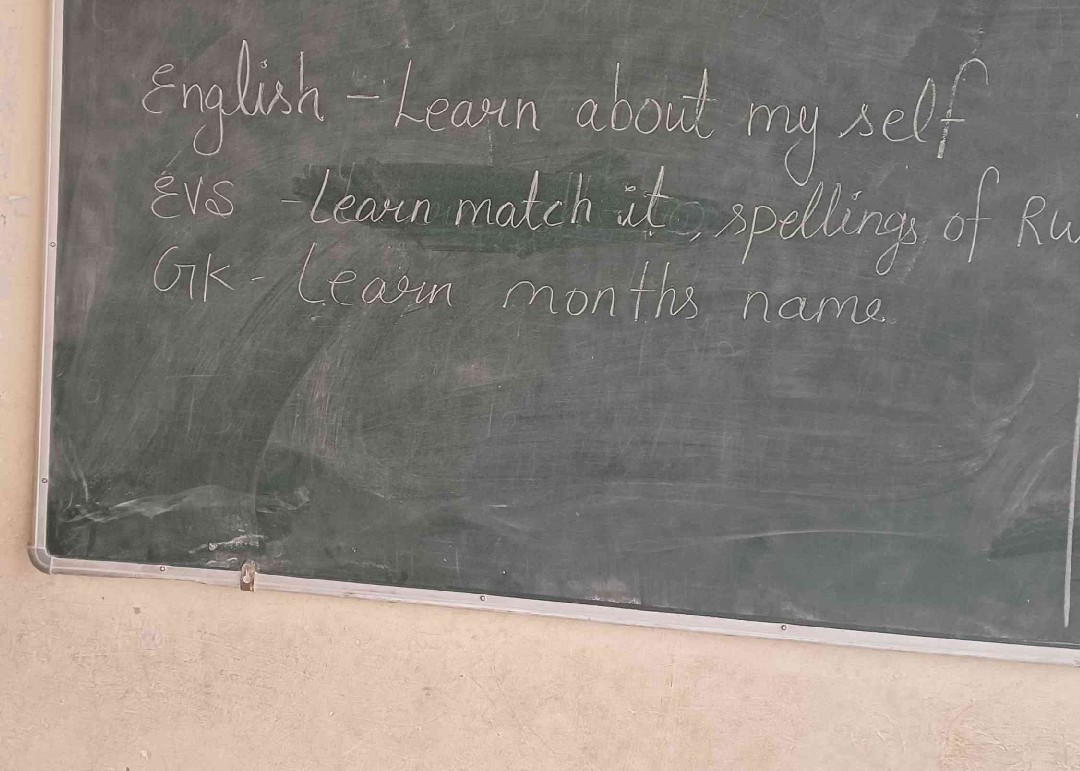 English - Learn about my self
EVS - Learn match it, spellings of
GK - Learn months name